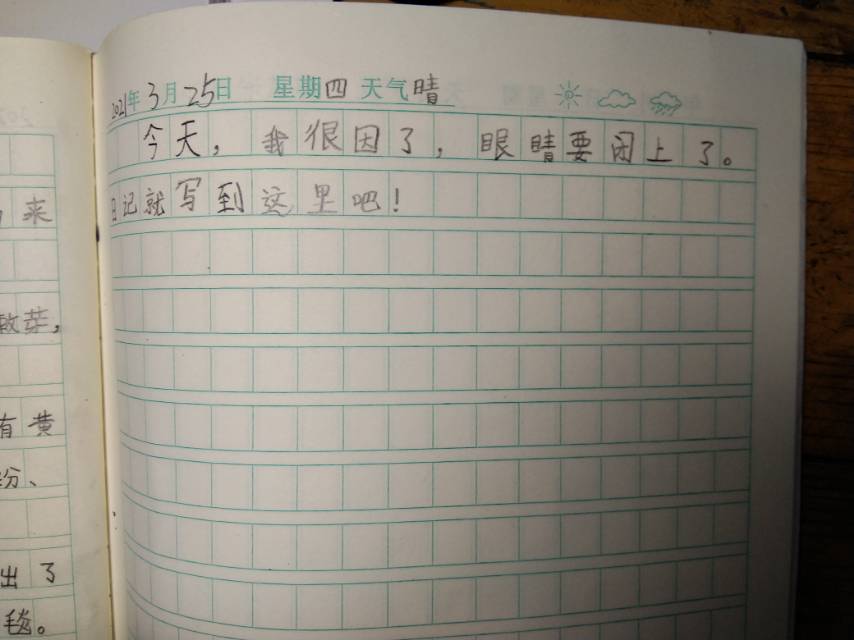 2021年3月25日 星期四 天气晴
今天，我很因了，眼睛要闭上了。
日记就写到这里吧！
来
芽，
有黄
份、
出了
毯。